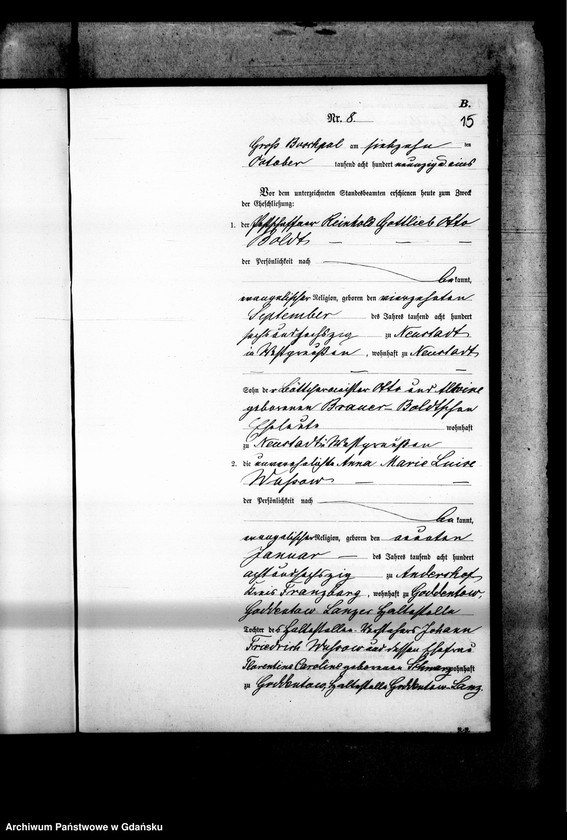 B.
Nr. 8.
15
Groß Boschpol am siebzehn ten
October tausend acht hundert neunzig u. eins
Vor dem unterzeichneten Standesbeamten erschienen heute zum Zweck
der Eheschließung:
1. der Reinhold Gottlieb Otto
Boldt — — —
der Persönlichkeit nach
be kannt,
evangelischer Religion, geboren den vierzehnten
September des Jahres tausend acht hundert
sechsundsechszig zu Neustadt
in Westpreußen, wohnhaft zu Neustadt
— — —
Sohn der Böttchermeister Otto und Alwine
geborenen Brauer-Boldtschen
Eheleute wohnhaft
zu Neustadt Westpreußen
2. die unverehelichte Anna Marie Luise
Wussow — —
der Persönlichkeit nach
be kannt,
evangelischer Religion, geboren den neunten
Januar — des Jahres tausend acht hundert
achtundsechszig zu Andershof
Kreis Franzburg, wohnhaft zu Goddentow,
Goddentow Lanzer Haltestelle
Tochter des Haltestellen-Vorstehers Johann
Friedrich Wussow und dessen Ehefrau
Florentine Caroline geborenen wohnhaft
zu Goddentow, Haltestelle Goddentow-Lanz.
Archiwum Państwowe w Gdańsku